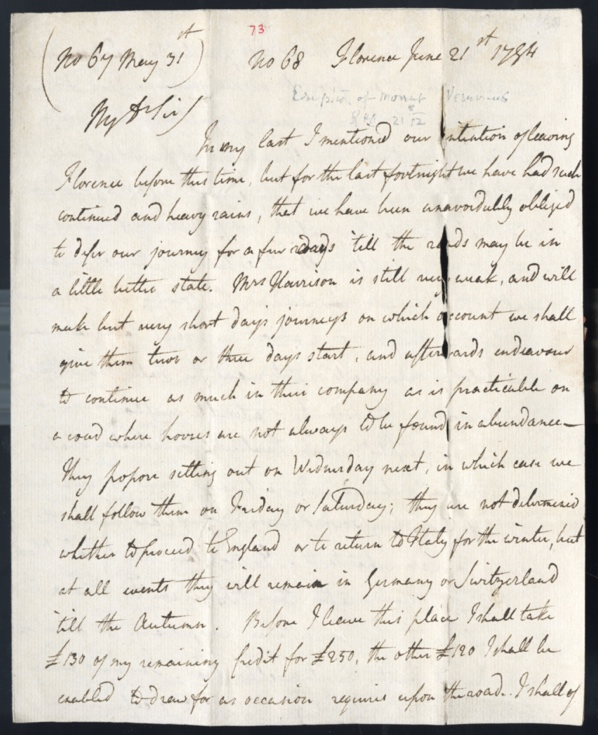 73
(No 67 May 31st) No 68 Florence June 21st 1794
Eruption of Mount Vesuvius
My Dr Sir/
In my last I mentioned our intention of leaving
Florence before this time, but for the last fortnight we have had such
continued and heavy rains, that we have been unavoidably obliged
to defer our journey for a few days 'till the roads may be in
a little better state. Mrs Harrison is still very weak, and will
make but very short days journeys on which account we shall
give them two or three days start, and afterwards endeavour
to continue as much in their company as is practicable on
a road where horses are not always to be found in abundance—
They propose setting out on Wednesday next, in which case we
shall follow them on Friday or Saturday; they are not determined
whether to proceed to England or to return to Italy for the winter, but
at all events they will remain in Germany or Switzerland
till the Autumn. Before I leave this place I shall take
£130 of my remaining Credit for £250, the other £120 I shall be
enabled to draw for as occasion requires upon the road. I shall of